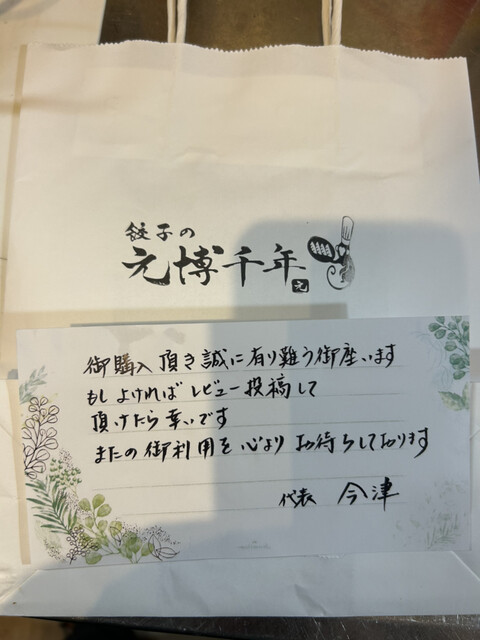 餃子の
元博千年
元
御購入頂き誠に有り難う御座います
もしよければレビュー投稿して
頂けたら幸いです
またの御利用を心よりお待ちしております
代表 今津